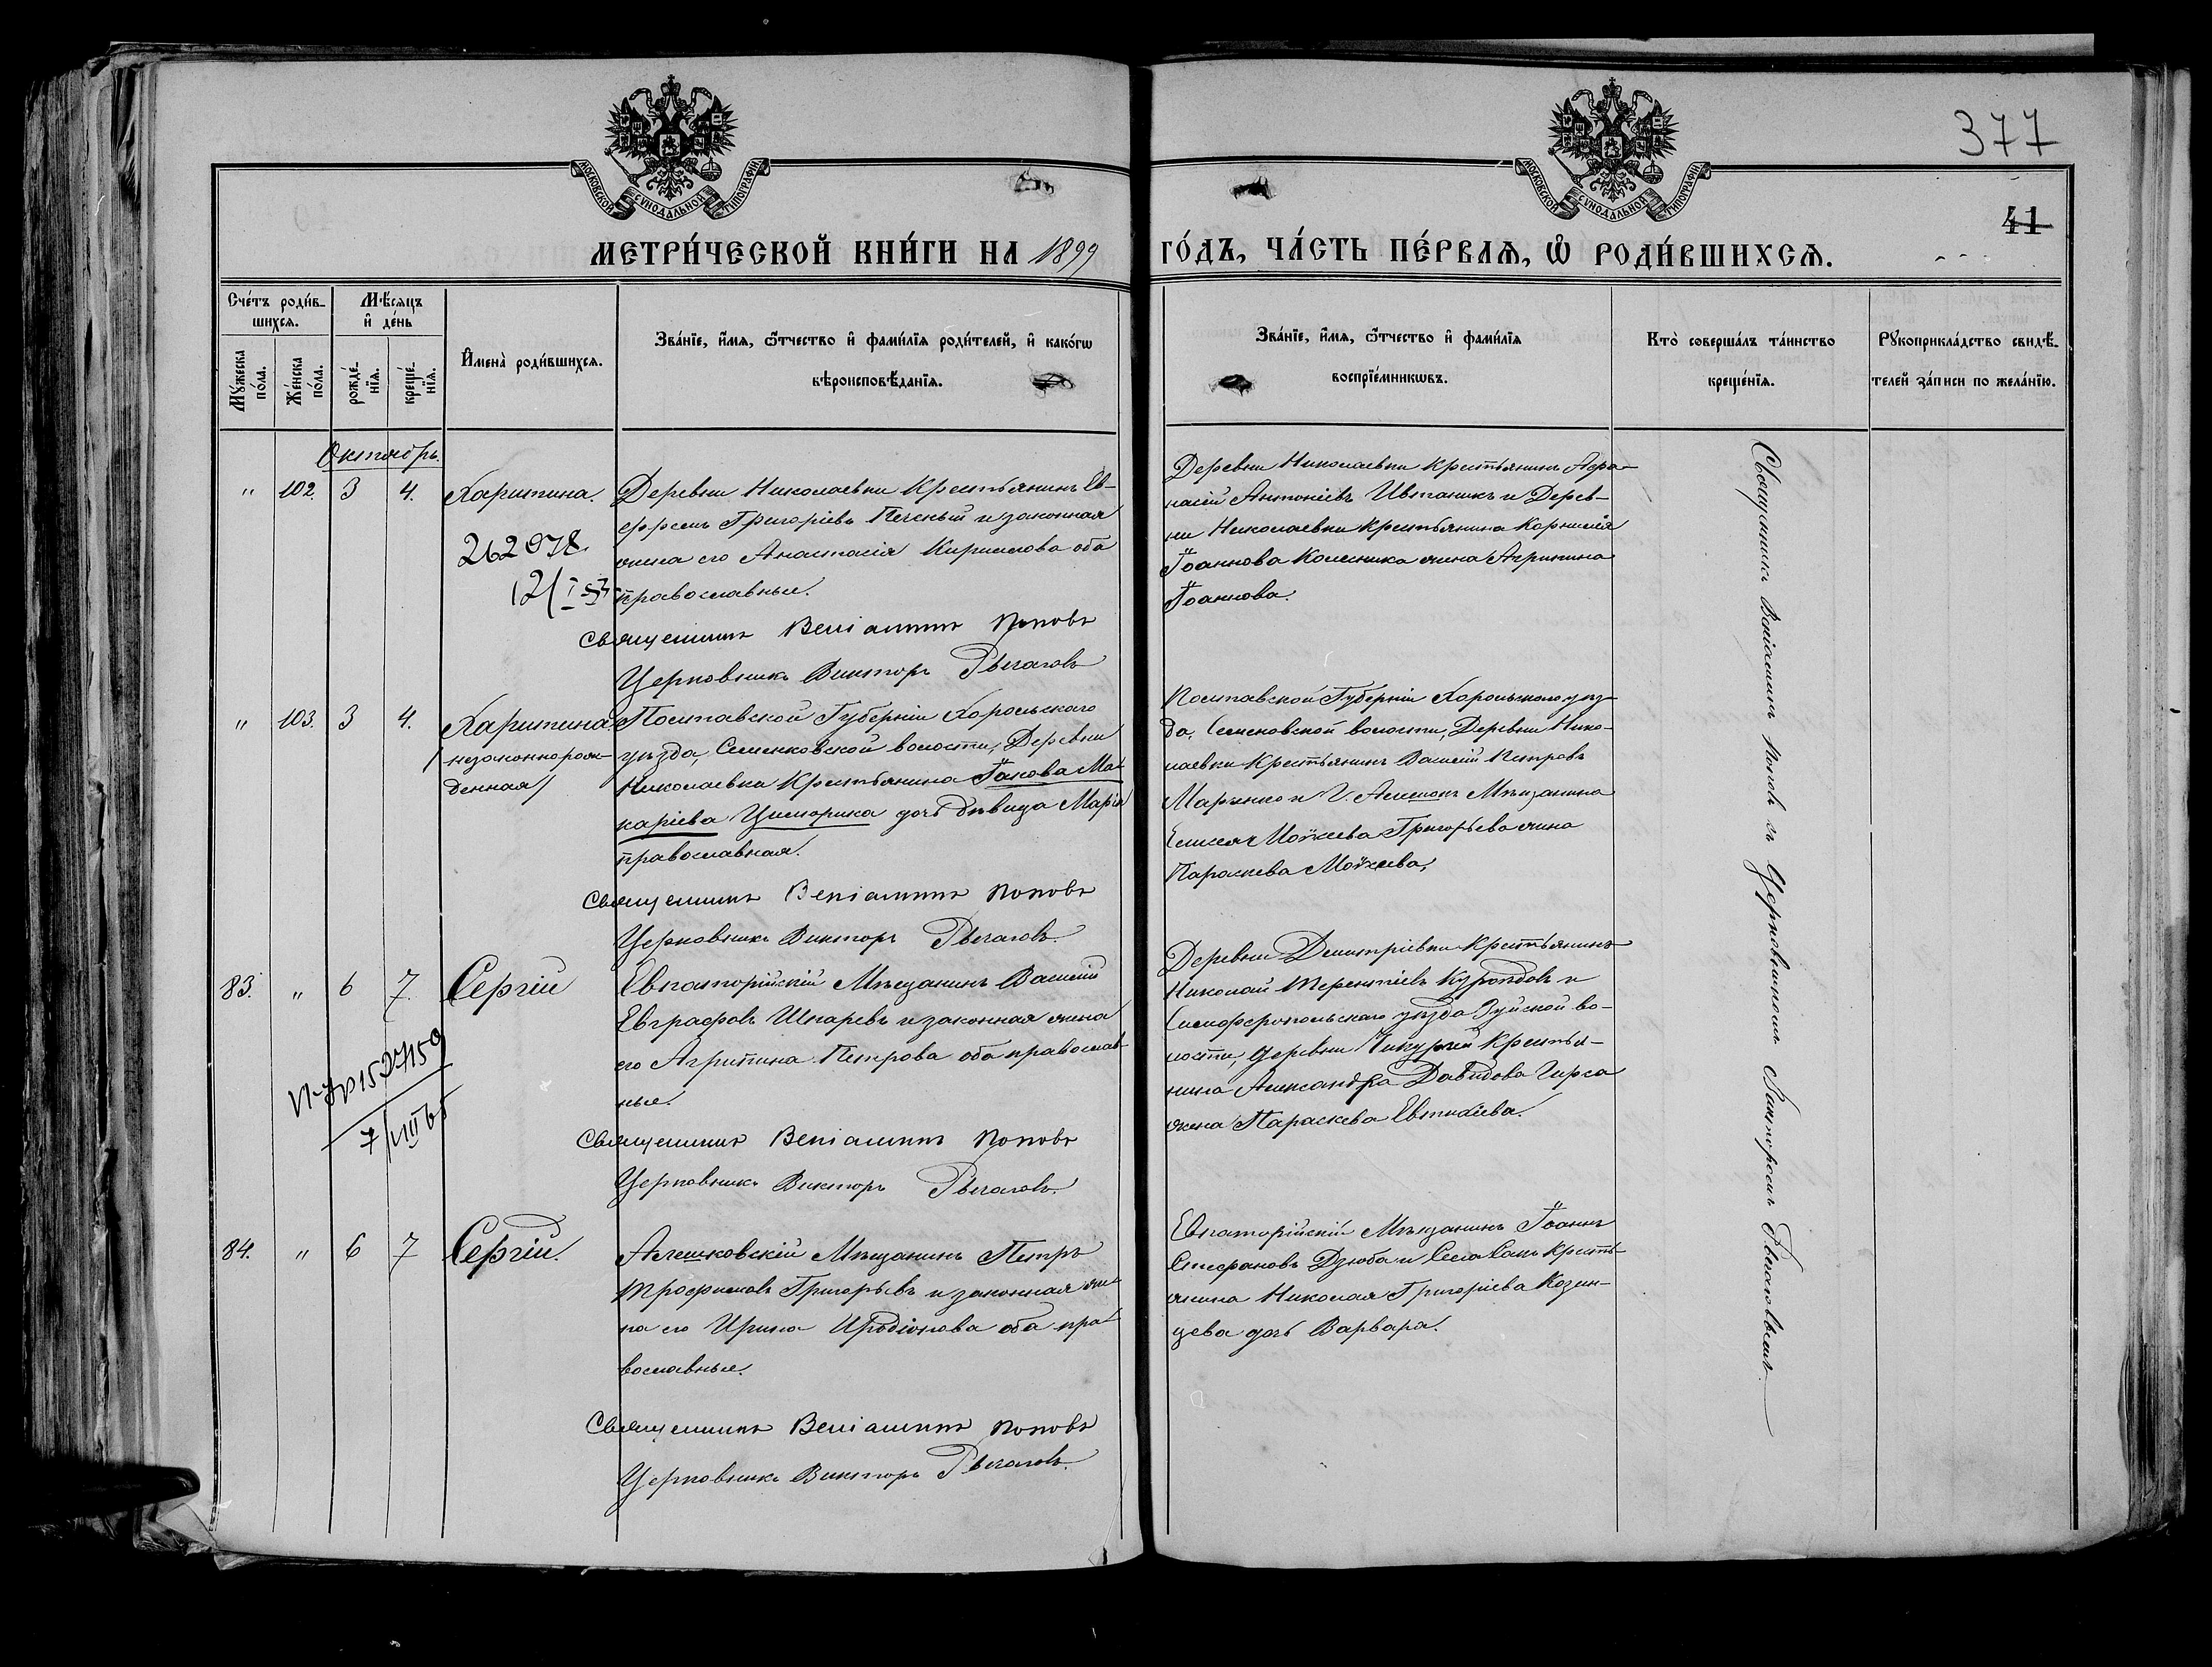 377
41
МОСКОВСКОЙ СѴНОДАЛЬНОЙ ТИПОГРАФІИ
МОСКОВСКОЙ СѴНОДАЛЬНОЙ ТИПОГРАФІИ
МЕТРИ́ЧЕСКОЙ КНИ́ГИ НА 1899 ГО́ДЪ, ЧА́СТЬ ПЕ́РВАѦ, Ѡ҆ РОДИ́ВШИХСѦ.
Сче́тъ роди́в-
шихсѧ.
Мѣ́сѧцъ
и҆ де́нь
Мꙋ́жеска
по́ла.
Же́нска
по́ла.
рожде́-
нїѧ.
креще́-
нїѧ.
И҆мена̀ роди́вшихсѧ.
Зва́нїе, и҆́мѧ, ѻ҆́тчество и҆ фамѝлїѧ роди́телей, и҆ како́гѡ
вѣроисповѣ́данїѧ.
Зва́нїе, и҆́мѧ, ѻ҆́тчество и҆ фамѝлїѧ
воспрїе́мникѡвъ.
Кто̀ соверша́лъ та́инство
креще́нїѧ.
Рꙋкоприкла́дство свидѣ́-
телей за́писи по жела́нїю.
Октябрь.
" 102. 3 4. Харитина.
262978
Деревни Николаевки Крестьянинъ Ев-
фремъ Григоріевъ Печеный и законная
жена его Анастасія Кириллова оба
православные.
Священникъ Веніаминъ Поповъ
Церковникъ Викторъ Рычаговъ
Деревни Николаевки Крестьянинъ Афа-
насій Антоніевъ Ивтаникъ и Дерев-
ни Николаевки Крестьянина Корнилія
Іоаннова Колесника жена Агрипина
Іоаннова.
" 103. 3 4. Харитина
/незаконнорож-
денная/
Полтавской Губерніи Хорольскаго
уѣзда, Семенковской волости, Деревни
Николаевки Крестьянина Іакова Ма-
каріева Цимарика дочь дѣвица Марія
православная.
Священникъ Веніаминъ Поповъ
Церковникъ Викторъ Рычаговъ.
Полтавской Губерніи Хорольскаго уѣз-
да, Семеновской волости, Деревни Нико-
лаевки Крестьянинъ Василій Петровъ
Марченко и Г. Алешокъ Мѣщанина
Елисея Моѵсеева Григорьева жена
Параскева Моѵсеева,
83. " 6 7. Сергій
Евпаторійскій Мѣщанинъ Василій
Евграфовъ Шпаревъ и законная жена
его Агрипина Петрова оба православ-
ные.
Священникъ Веніаминъ Поповъ
Церковникъ Викторъ Рычаговъ.
Деревни Димитріевки Крестьянинъ
Николай Терентіевъ Куроѣдовъ и
Симферопольскаго уѣзда Зуйской во-
лости, деревни Крестья-
нина Александра Давидова Гирса
жена Параскева Евтихіева.
84. " 6 7 Сергій.
Алешковскій Мѣщанинъ Петръ
Трофимовъ Григорьевъ и законная же-
на его Ирина Иродіонова оба пра-
вославные.
Священникъ Веніаминъ Поповъ
Церковникъ Викторъ Рычаговъ.
Евпаторійскій Мѣщанинъ Іоаннъ
Стефановъ Дзюба и Села Сакъ Кресть-
янина Николая Григоріева Козин-
цева дочь Варвара.
Священникъ Веніаминъ Поповъ съ Церковникомъ Викторомъ Рычаговымъ.